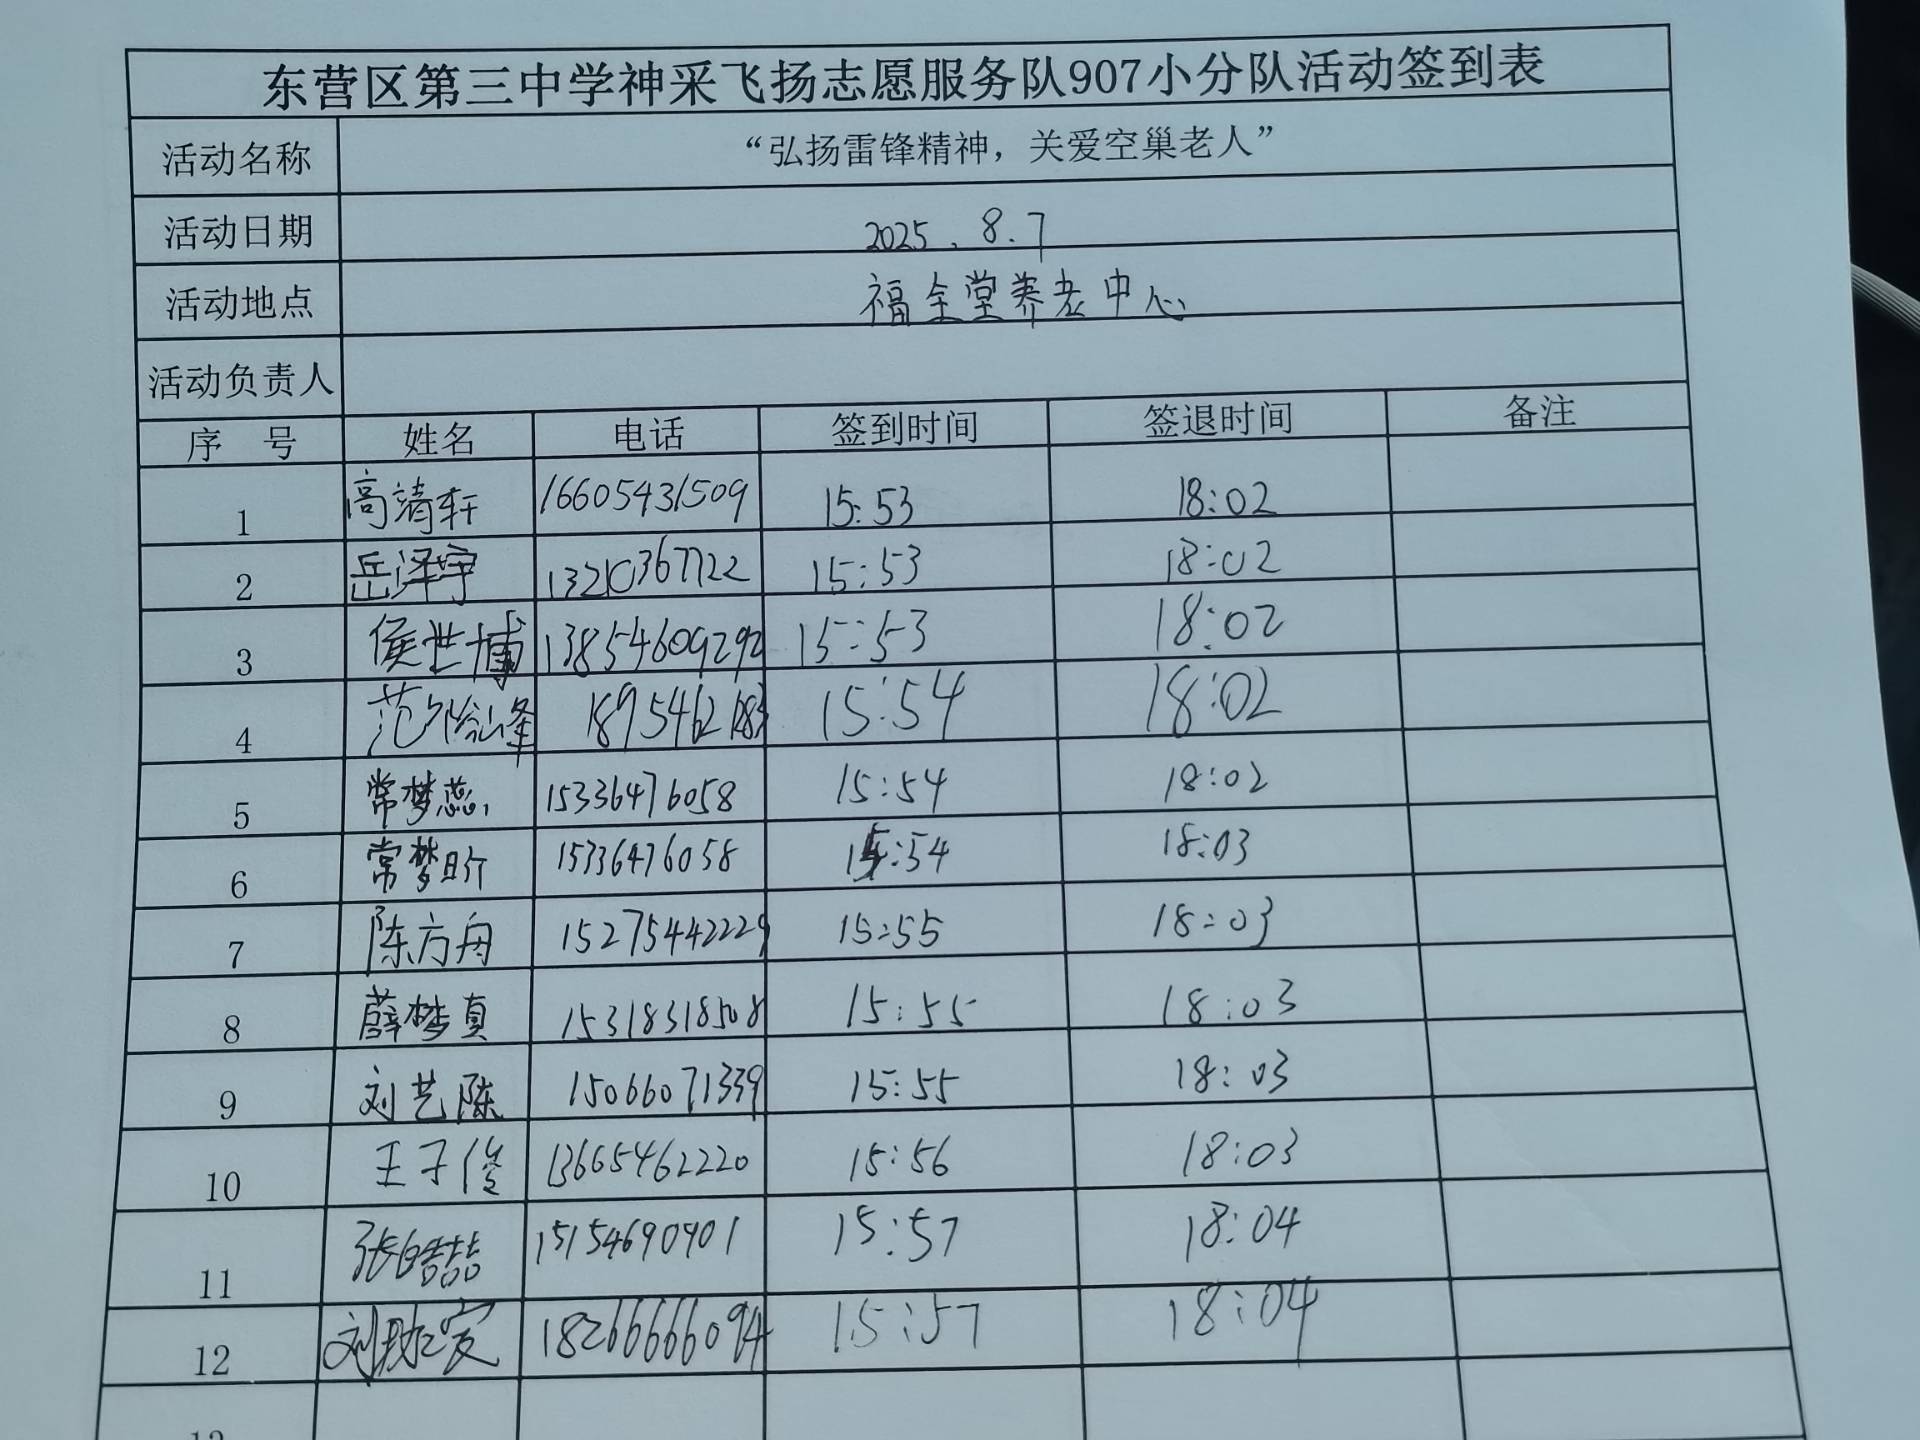 东营区第三中学神采飞扬志愿服务队907小分队活动签到表
活动名称 “弘扬雷锋精神，关爱空巢老人”
活动日期 2025.8.7
活动地点 福全堂养老中心
活动负责人
序 号 姓名 电话 签到时间 签退时间 备注
1 高靖轩 16605431509 15:53 18:02
2 岳泽宇 13210367722 15:53 18:02
3 侯世博 13854609292 15:53 18:02
4 15:54 18:02
5 常梦蕊 15336476058 15:54 18:02
6 常梦昕 15336476058 15:54 18:03
7 陈方舟 15275442229 15:55 18:03
8 薛梦真 15318318508 15:55 18:03
9 刘艺陈 15066071339 15:55 18:03
10 王子俊 13665462220 15:56 18:03
11 张皓喆 15154690901 15:57 18:04
12 18266666094 15:57 18:04
13